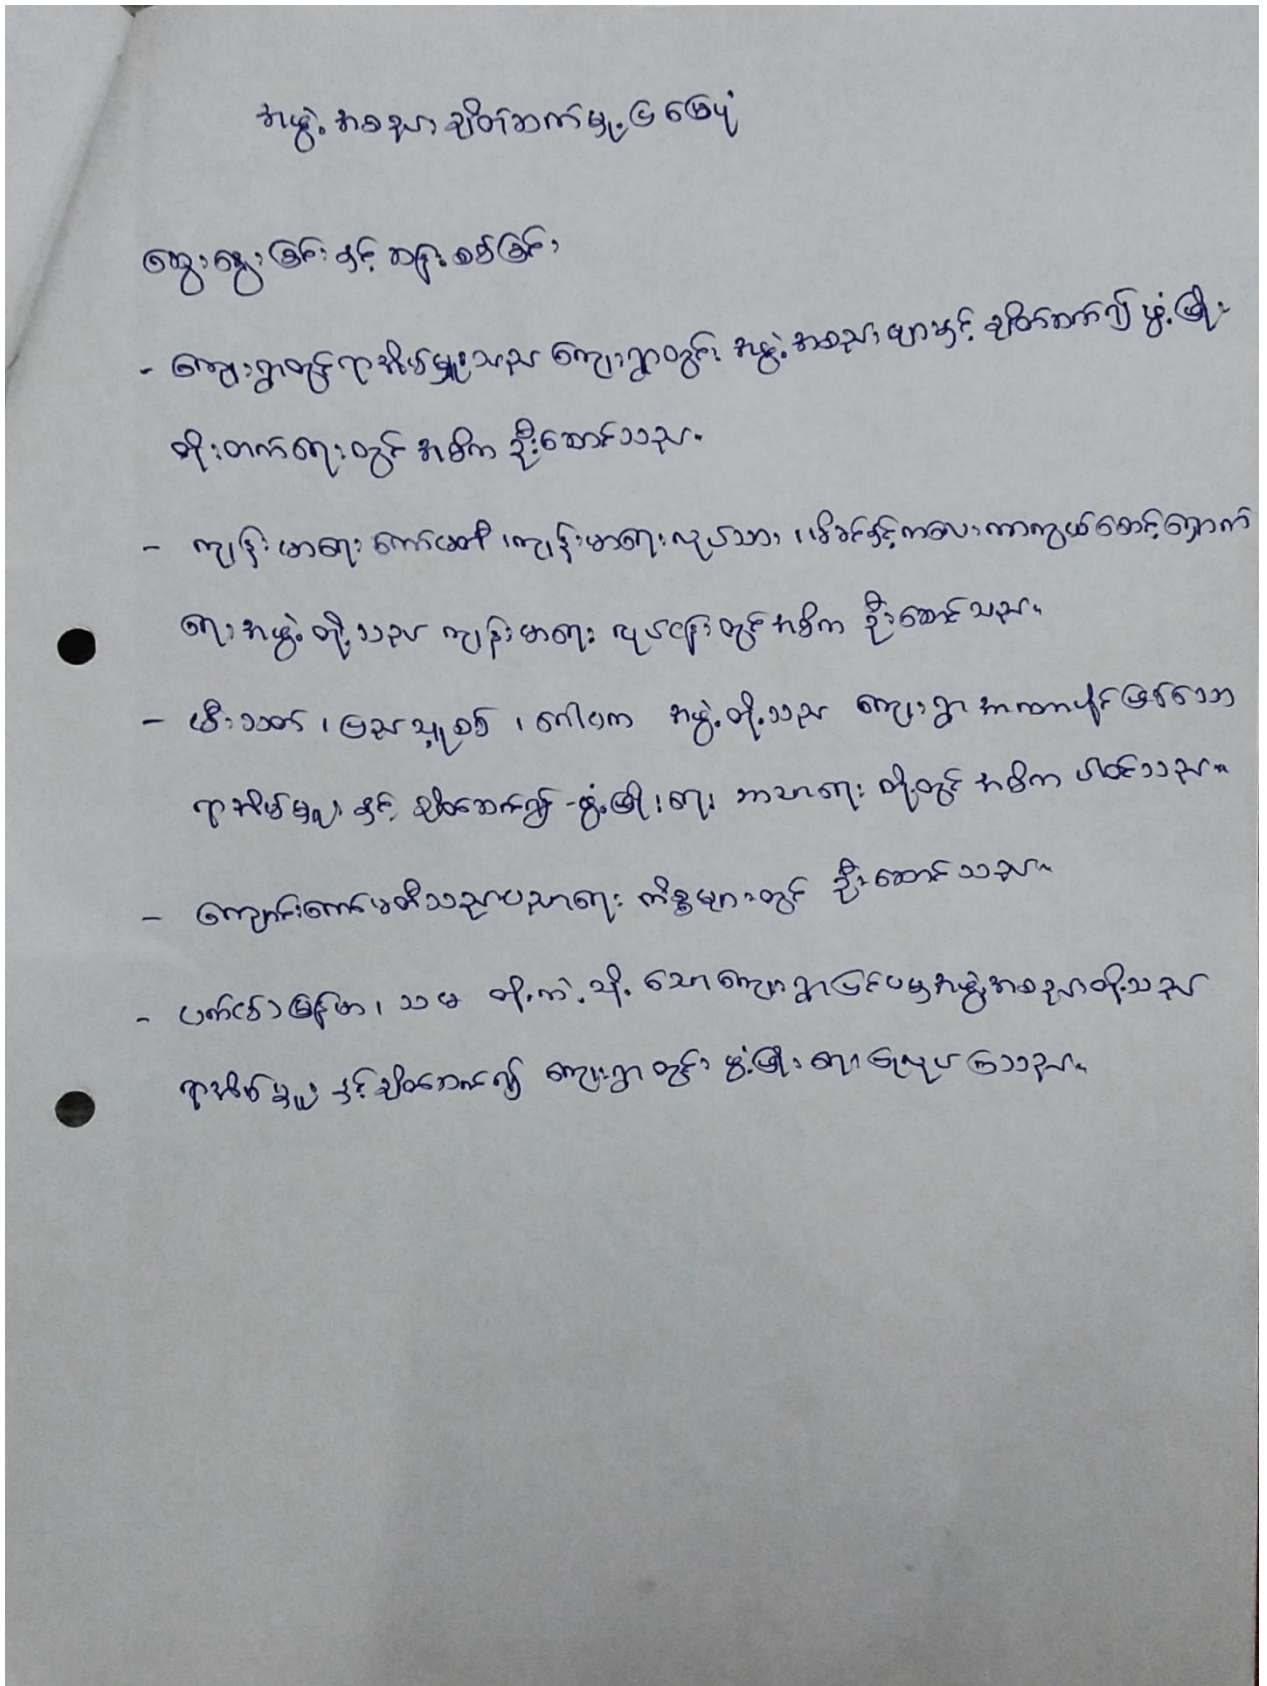 အဖွဲ့အစည်းချိတ်ဆက်မှုပြမြေပုံ
ဆွေးနွေးခြင်းနှင့် ဆန်းစစ်ခြင်း
- ကျေးရွာတွင်ရာအိမ်မှူးသည် ကျေးရွာတွင်း အဖွဲ့အစည်းများနှင့် ချိတ်ဆက်၍ ဖွံ့ဖြိုး
တိုးတက်ရေးတွင် အဓိက ဦးဆောင်သည်။
- ကျန်းမာရေးကော်မတီ၊ ကျန်းမာရေးလုပ်သား၊ မိခင်နှင့်ကလေးကာကွယ်စောင့်ရှောက်
ရေးအဖွဲ့တို့သည် ကျန်းမာရေး လုပ်ငန်းတွင်အဓိက ဦးဆောင်သည်။
- မီးသတ်၊ ပြည်သူ့စစ်၊ ဂေါပက အဖွဲ့တို့သည် ကျေးရွာ အာဏာပိုင်ဖြစ်သော
ရာအိမ်မှူး နှင့် ချိတ်ဆက်၍ ဖွံ့ဖြိုးရေး ဘာသာရေး တို့တွင် အဓိက ပါဝင်သည်။
- ကျောင်းကော်မတီသည်ပညာရေး ကိစ္စများတွင် ဦးဆောင်သည်။
- ပက်ဒေါမြန်မာ၊ သမ တို့ကဲ့သို့ သောကျေးရွာပြင်ပမှအဖွဲ့အစည်းတို့သည်
ရာအိမ်မှူး နှင့်ချိတ်ဆက်၍ ကျေးရွာတွင်း ဖွံ့ဖြိုးရေးပြုလုပ်ကြသည်။